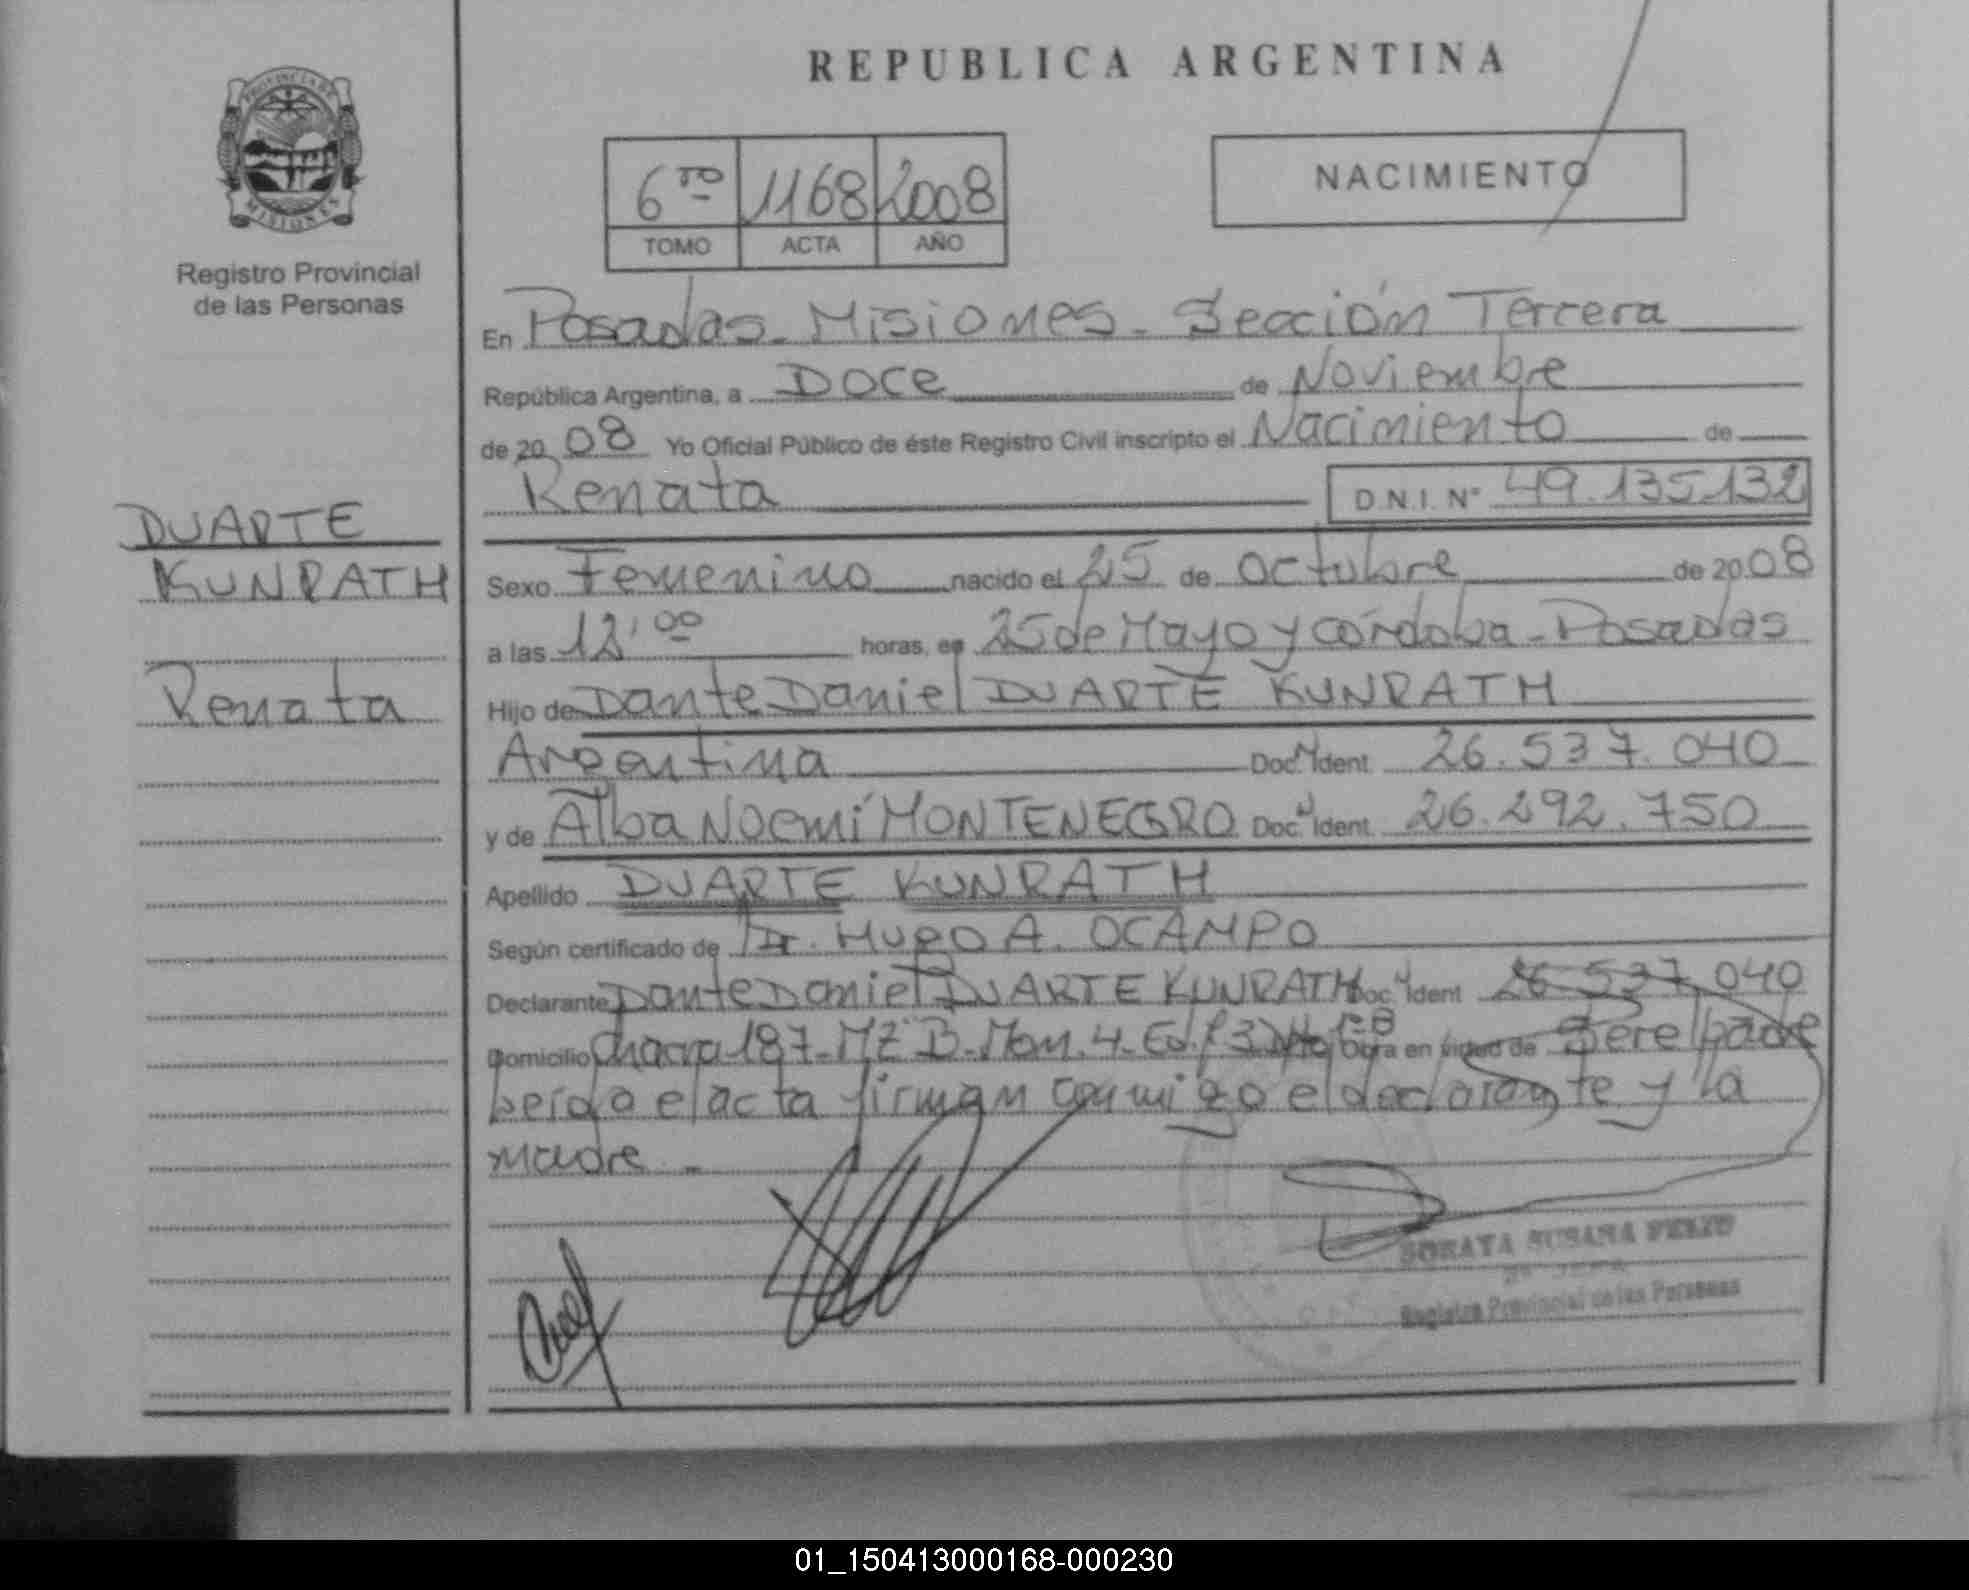 REPUBLICA ARGENTINA
PROVINCIA DE
MISIONES
Registro Provincial
de las Personas
6to 1168 2008
TOMO ACTA AÑO
NACIMIENTO
En Posadas - Misiones - Sección Tercera
República Argentina, a Doce de Noviembre
de 2008 Yo Oficial Público de éste Registro Civil inscripto el Nacimiento de
Renata D.N.I. Nº 49.135.132
DUARTE
KUNRATH
Renata
Sexo Femenino nacido el 25 de Octubre de 2008
a las 12,00 horas, en 25 de Mayo y Córdoba - Posadas
Hijo de Dante Daniel DUARTE KUNRATH
Argentina Doc. Ident 26.537.040
y de Alba Noemí MONTENEGRO Doc. Ident 26.292.750
Apellido DUARTE KUNRATH
Según certificado de Dr. HUGO A. OCAMPO
Declarante Dante Daniel DUARTE KUNRATH Doc. Ident 26.537.040
Domicilio Chacra 187 - MZ B - Mon. 4 - Edf 3 Obra en virtud de Ser el padre
Leída el acta firman conmigo el declarante y la
madre. -
SORAYA SUSANA
Registro Provincial de las Personas
01_150413000168-000230